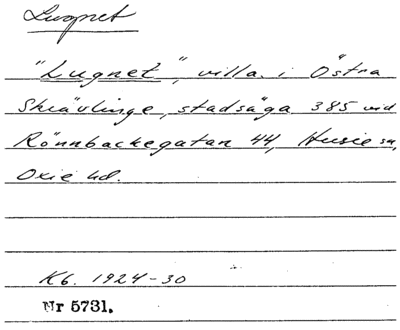 Lugnet
"Lugnet", villa i Östra
Skrävlinge, stadsäga 385 vid
Rönnbackegatan 44, Husie sn,
Oxie hd.
Kb. 1924-30
Nr 5731.